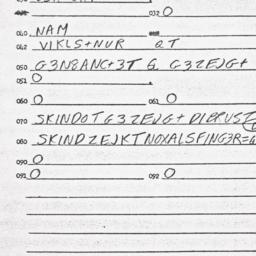 032 O
040 NAM
042 VIKLS+NUR QT
050 G3N8ANC+3T & G3ZEJG+
051 O
060 O 061 O
070 SKINDOTG3ZEJG+
080 SKINDZEJKTNOXALSFING3R=
090 O
091 O 092 O